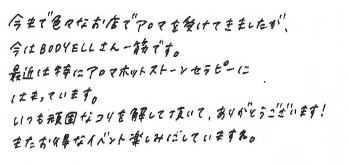 今まで色々なお店でアロマを受けてきましたが、
今はBODYELLさん一筋です。
最近は特にアロマホットストーンセラピーに
はまっています。
いつも頑固なコリを解して頂いて、ありがとうございます!
またお得なイベント楽しみにしていますね。